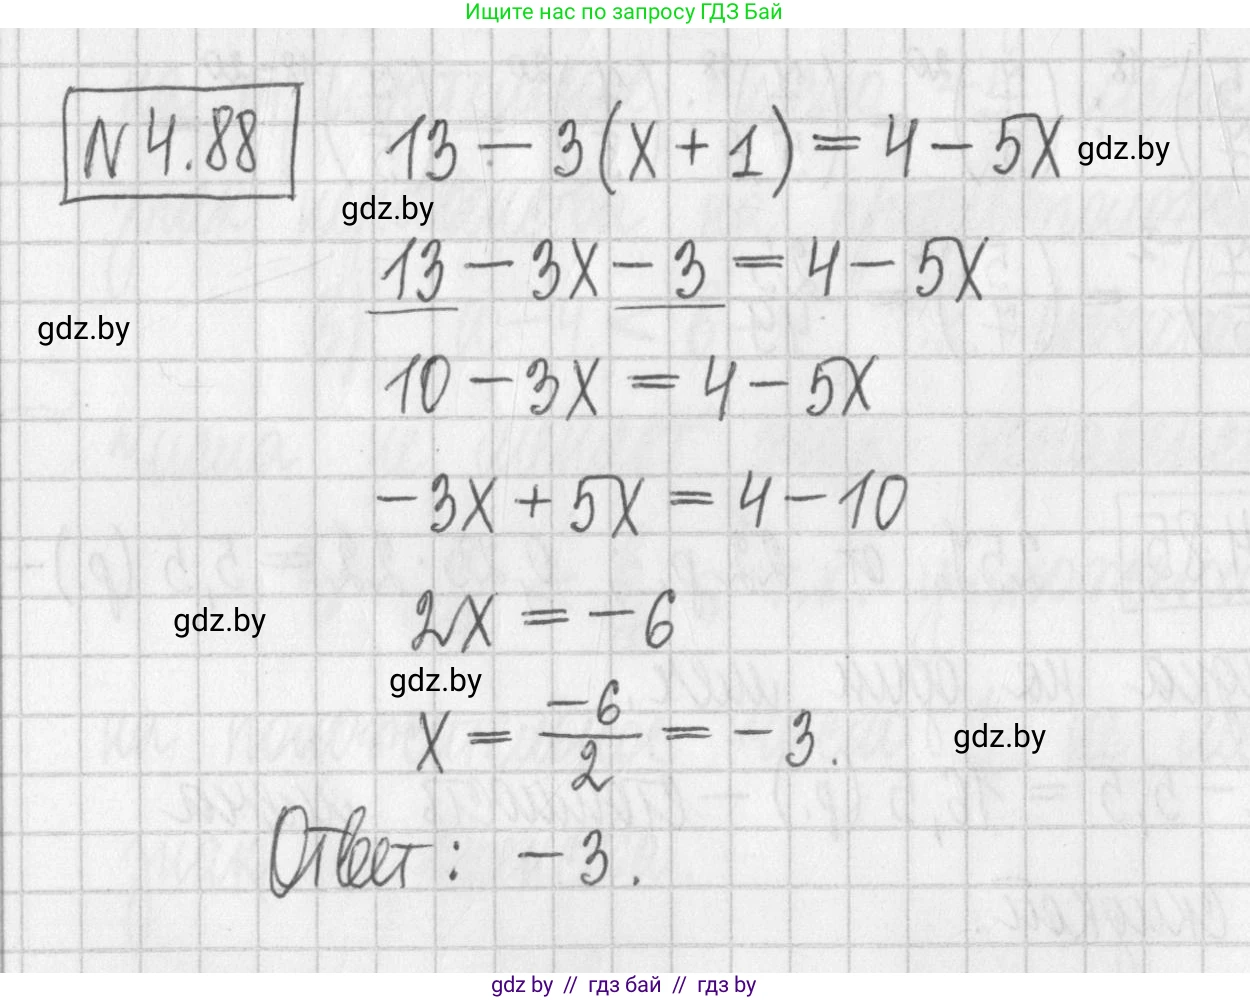 Ищите нас по запросу ГДЗ Бай
N 4.88
13 - 3(x + 1) = 4 - 5x
gdz.by
gdz.by
13 - 3x - 3 = 4 - 5x
gdz.by
10 - 3x = 4 - 5x
-3x + 5x = 4 - 10
2x = -6
gdz.by
gdz.by
x = -6/2 = -3.
gdz.by
Ответ: -3.
gdz by // гдз бай // гдз by